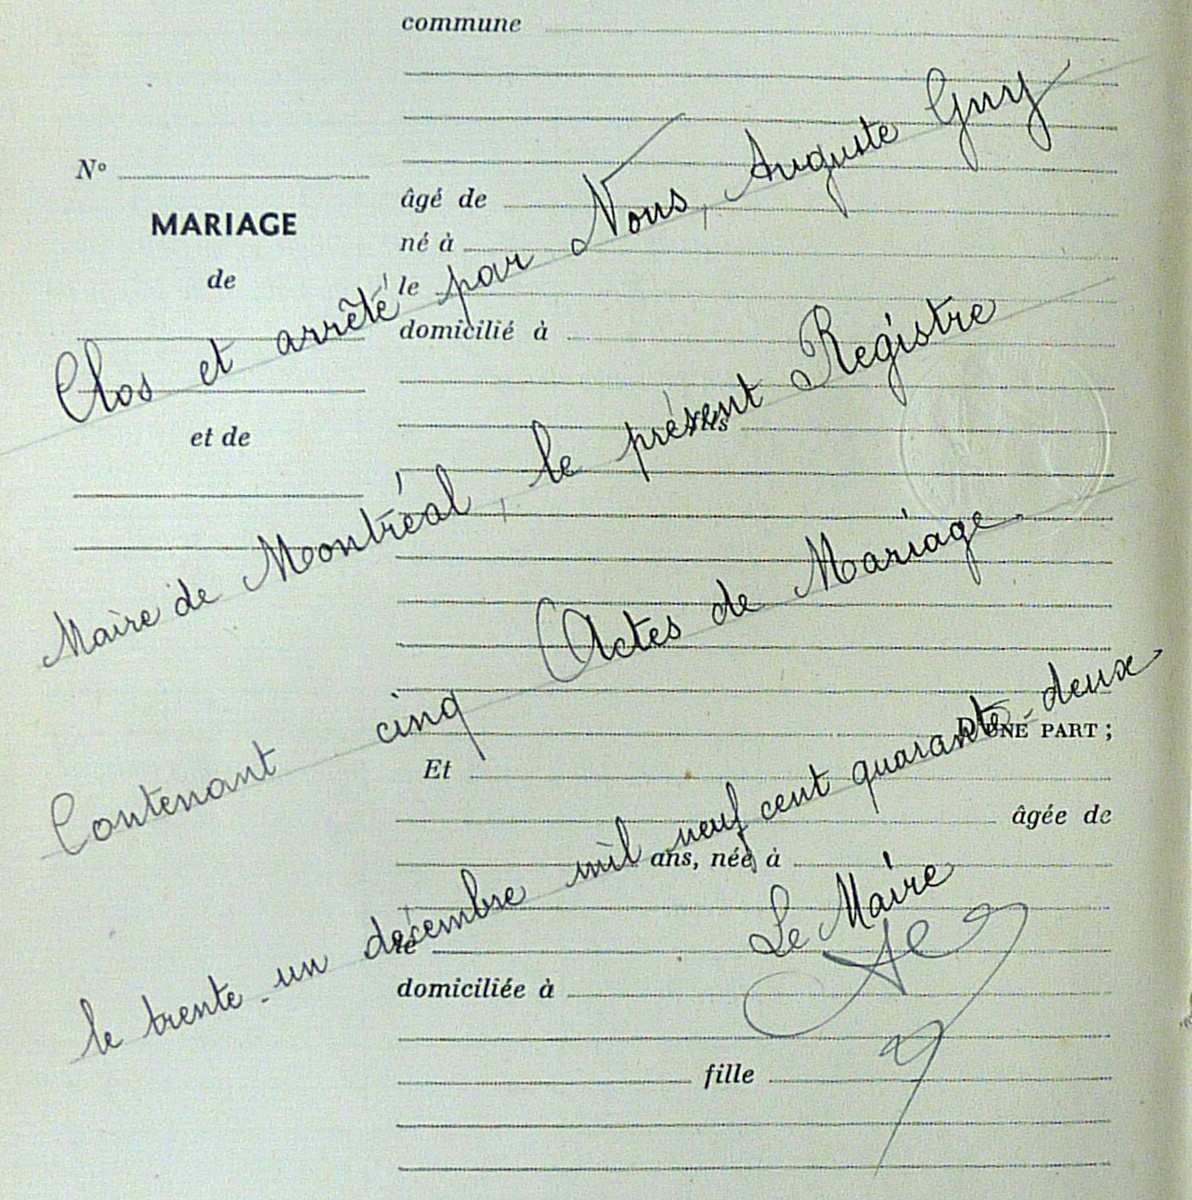 commune
N°
MARIAGE
de
et de
âgé de
né à
le
domicilié à
fils
D'UNE PART ;
Et
âgée de
ans, née à
le
domiciliée à
fille
Clos et arrêté par Nous, Auguste Guy
Maire de Montréal, le présent Registre
Contenant cinq Actes de Mariage.
le trente-un décembre mil neuf cent quarante-deux
Le Maire